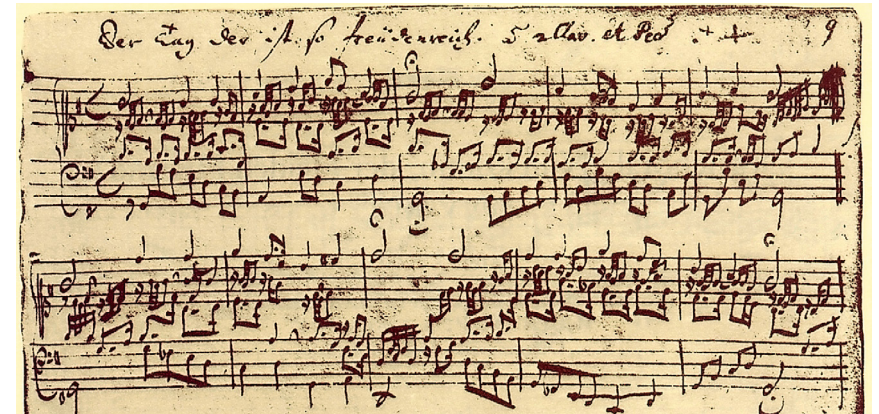 Der Tag der ist so freudenreich. 2 Clav. et Ped 9